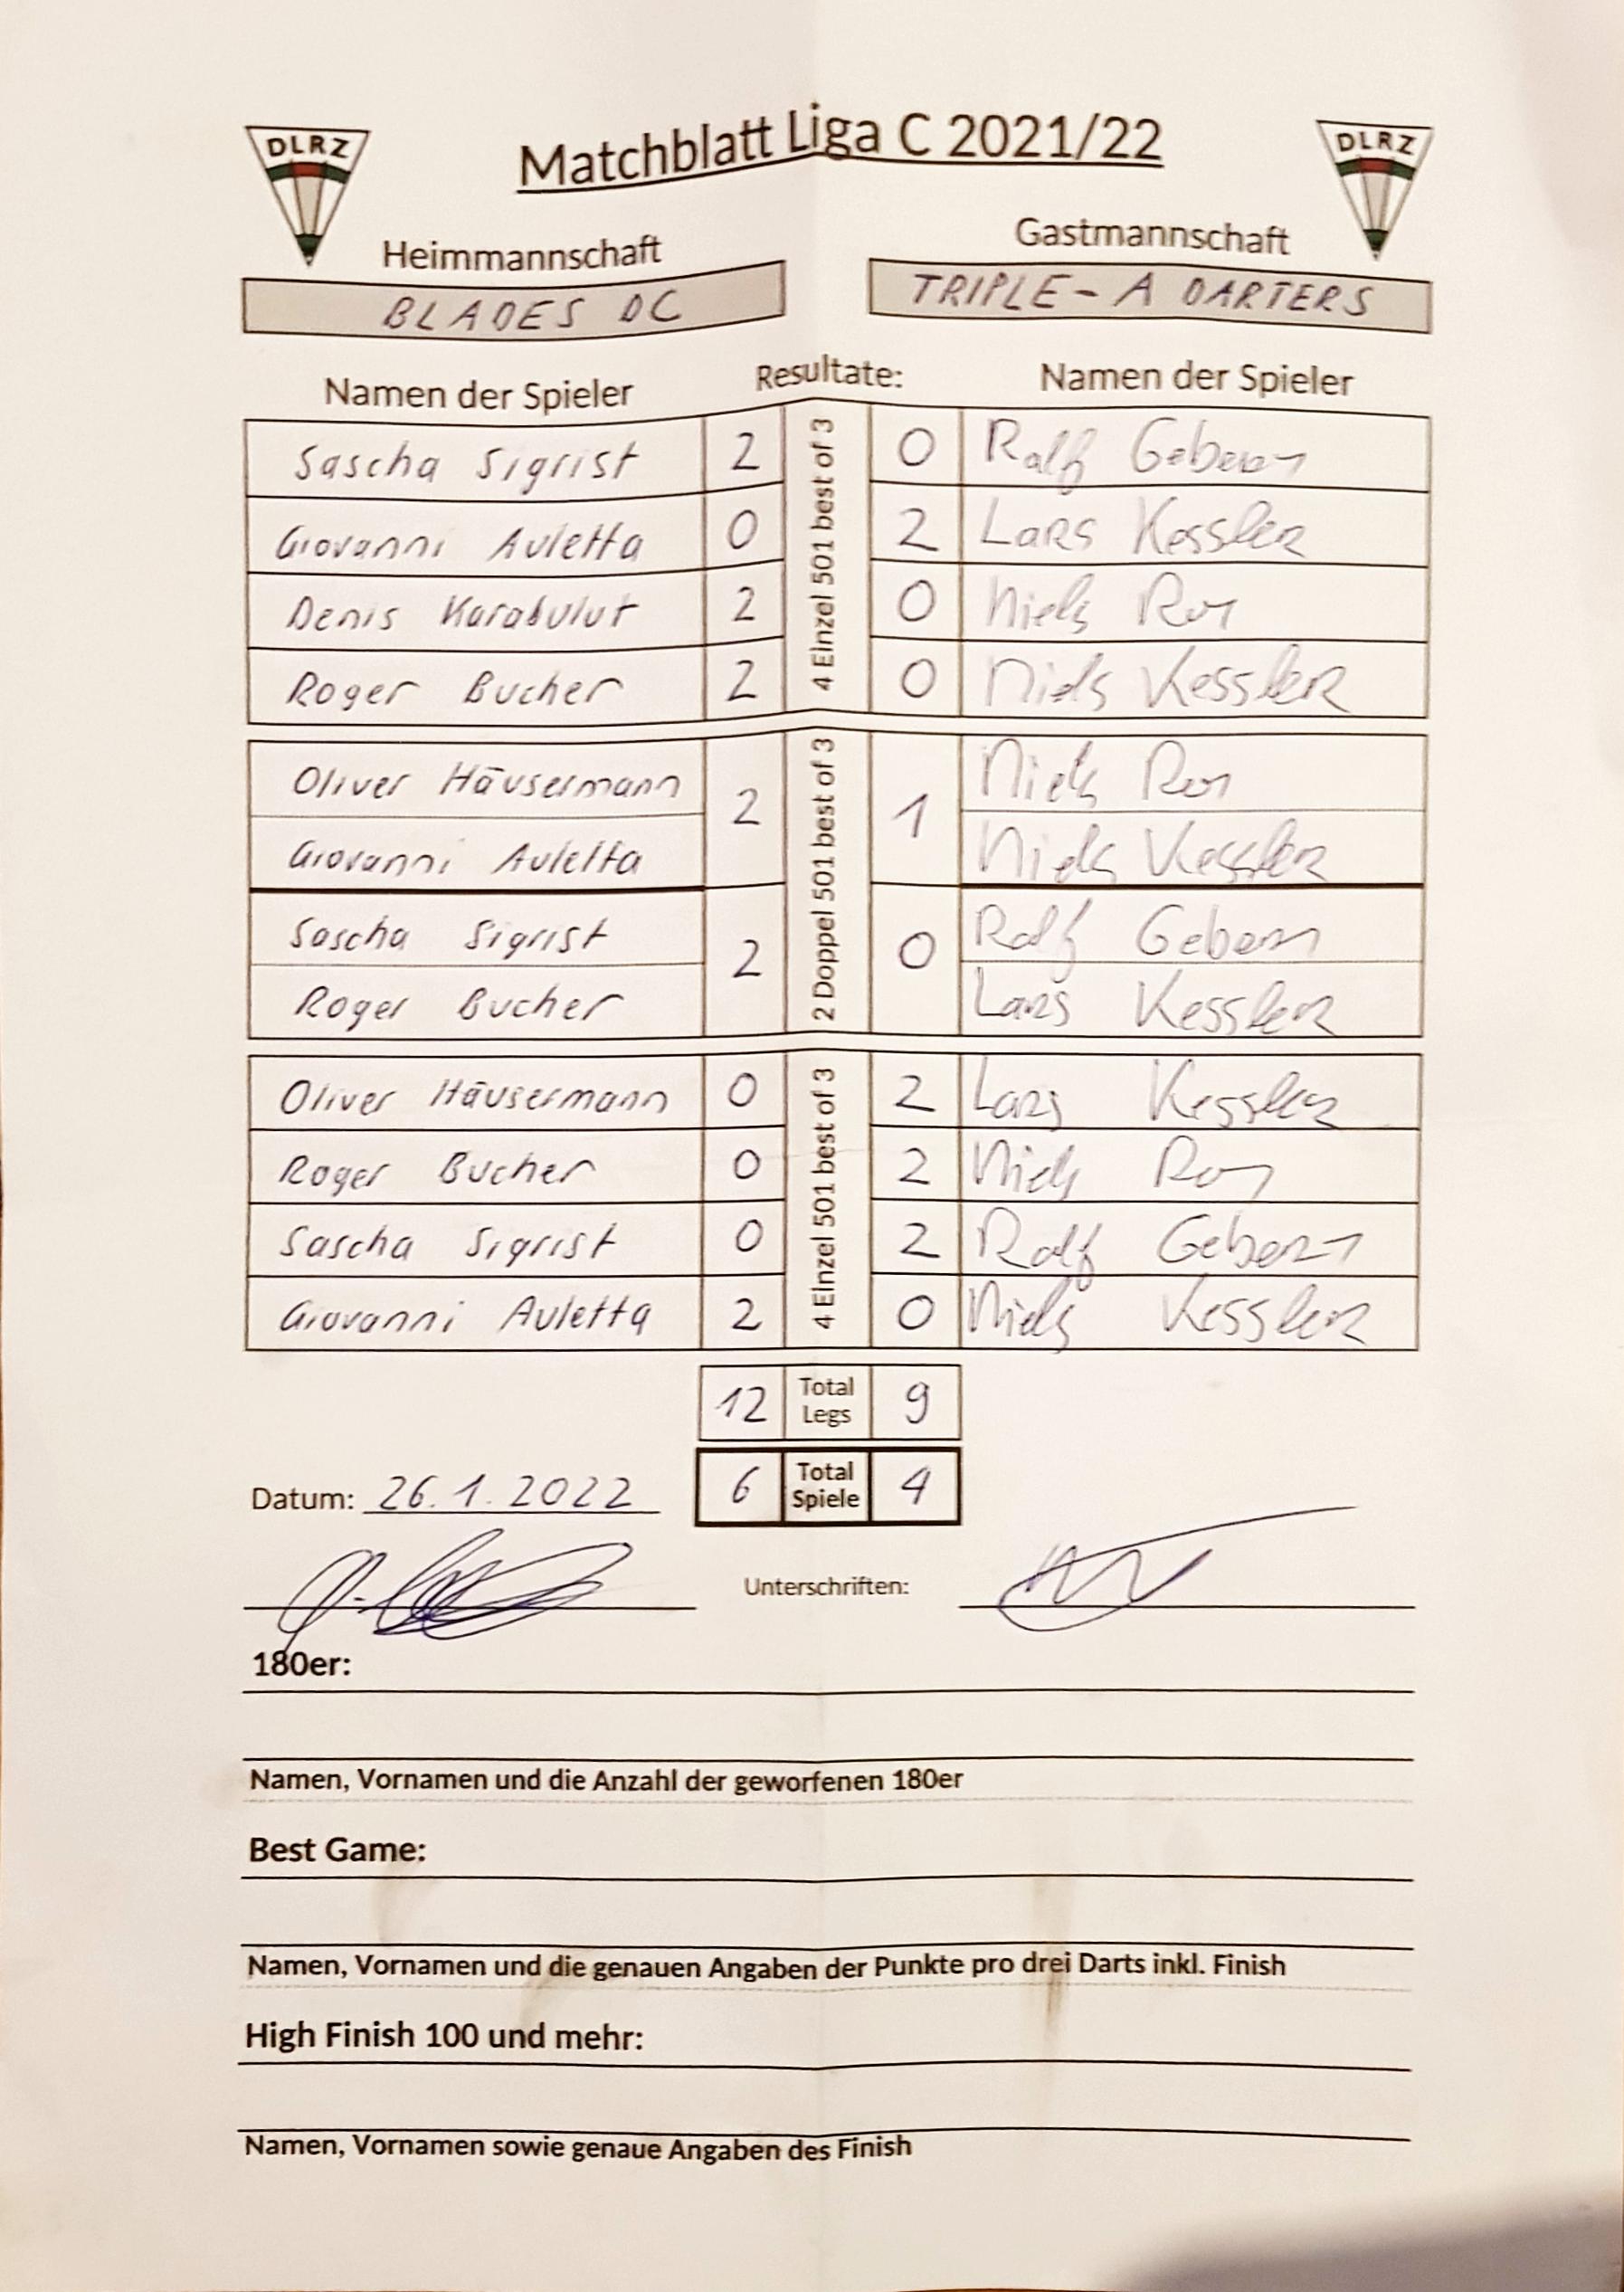 DLRZ Matchblatt Liga C 2021/22 DLRZ
Heimmannschaft Gastmannschaft
BLADES DC TRIPLE-A DARTERS
Namen der Spieler Resultate: Namen der Spieler
4 Einzel 501 best of 3
Sascha Sigrist 2 0 Ralf
Giovanni Auletta 0 2 Lars Kessler
Denis Karabulut 2 0 Niels
Roger Bucher 2 0 Niels Kessler
2 Doppel 501 best of 3
Oliver Häusermann 2 1 Niels
Giovanni Auletta Niels Kessler
Sascha Sigrist 2 0 Ralf
Roger Bucher Lars Kessler
4 Einzel 501 best of 3
Oliver Häusermann 0 2 Lars Kessler
Roger Bucher 0 2 Niels
Sascha Sigrist 0 2 Ralf
Giovanni Auletta 2 0 Niels Kessler
12 Total Legs 9
Datum: 26.1.2022 6 Total Spiele 4
Unterschriften:
180er:
Namen, Vornamen und die Anzahl der geworfenen 180er
Best Game:
Namen, Vornamen und die genauen Angaben der Punkte pro drei Darts inkl. Finish
High Finish 100 und mehr:
Namen, Vornamen sowie genaue Angaben des Finish